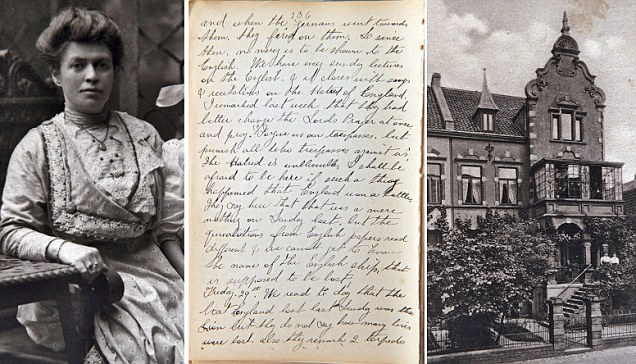 136
and when the Germans went towards
them, they fired on them. So since
then, no mercy is to be shown to the
English. We have every Sunday lectures
on the English, & it closes with songs
& recitations on the Hatred of England.
I remarked last week that they had
better change the Lord's Prayer at once
and pray "Forgive us our trespasses, but
punish all who trespass against us".
The Hatred is unltimely. I shall be
afraid to be here if such a thing
happened that England won a battle.
They say here that that was a mere
nothing on Sunday last, but the
quotations from English papers read
different & we cannot get to know
the names of the English ships, that
is supposed to be lost.
Friday, 29th. We read to day that the
boat England lost last Sunday was the
Lion but they do not say how many lives
were lost. also they remark 2 torpedo